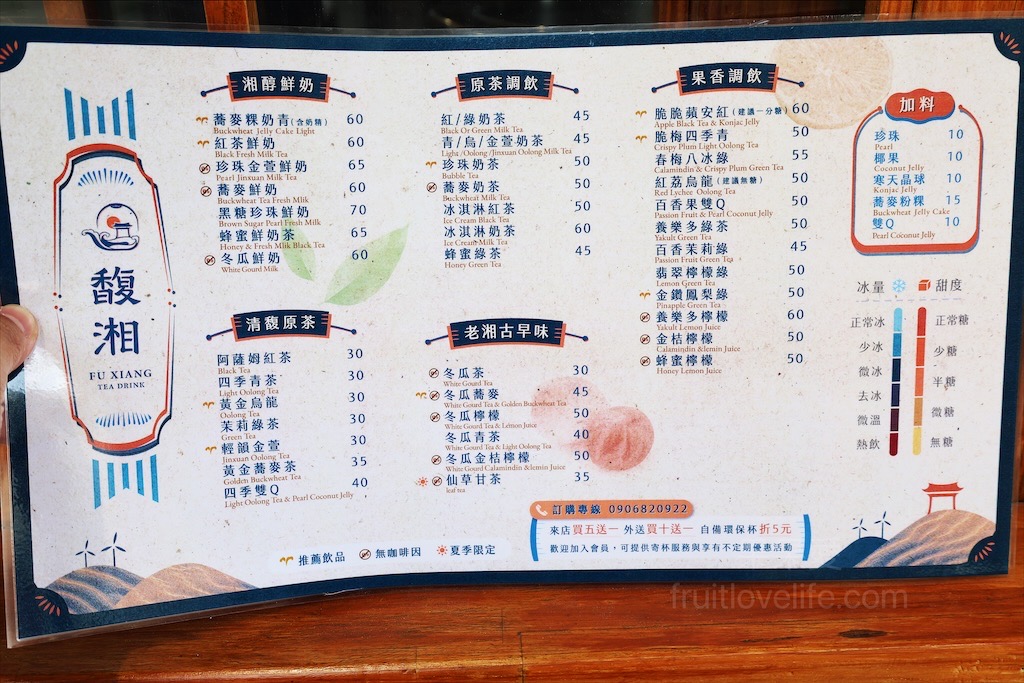 馥湘
FU XIANG
TEA DRINK
湘醇鮮奶
蕎麥粿奶青(含奶精) 60
Buckwheat Jelly Cake Light
紅茶鮮奶 60
Black Fresh Mlik Tea
珍珠金萱鮮奶 65
Pearl Jinxuan Milk Tea
蕎麥鮮奶 60
Buckwheat Tea Fresh Mlik
黑糖珍珠鮮奶 70
Brown Sugar Pearl Fresh Milk
蜂蜜鮮奶茶 65
Honey & Fresh Mlik Black Tea
冬瓜鮮奶 60
White Gourd Milk
清馥原茶
阿薩姆紅茶 30
Black Tea
四季青茶 30
Light Oolong Tea
黃金烏龍 30
Oolong Tea
茉莉綠茶 30
Green Tea
輕韻金萱 30
Jinxuan Oolong Tea
黃金蕎麥茶 35
Golden Buckwheat Tea
四季雙Q 40
Light Oolong Tea & Pearl Coconut Jelly
原茶調飲
紅/綠奶茶 45
Black Or Green Milk Tea
青/烏/金萱奶茶 45
Light /Oolong /Jinxuan Oolong Milk Tea
珍珠奶茶 50
Bubble Tea
蕎麥奶茶 50
Buckwheat Milk Tea
冰淇淋紅茶 50
Ice Cream Black Tea
冰淇淋奶茶 60
Ice Cream Milk Tea
蜂蜜綠茶 45
Honey Green Tea
老湘古早味
冬瓜茶 30
White Gourd Tea
冬瓜蕎麥 45
White Gourd Tea & Golden Buckwheat Tea
冬瓜檸檬 50
White Gourd Tea & Lemon Juice
冬瓜青茶 40
White Gourd Tea & Light Oolong Tea
冬瓜金桔檸檬 50
White Gourd Calamindin &lemin Juice
仙草甘茶 35
leaf tea
果香調飲
脆脆蘋安紅(建議一分糖) 60
Apple Black Tea & Konjac Jelly
脆梅四季青 50
Crispy Plum Light Oolong Tea
春梅八冰綠 55
Calamindin & Crispy Plum Green Tea
紅荔烏龍(建議無糖) 50
Red Lychee Oolong Tea
百香果雙Q 50
Passion Fruit & Pearl Coconut Jelly
養樂多綠茶 50
Yakult Green Tea
百香茉莉綠 45
Passion Fruit Green Tea
翡翠檸檬綠 50
Lemon Green Tea
金鑽鳳梨綠 50
Pinapple Green Tea
養樂多檸檬 60
Yakult Lemon Juice
金桔檸檬 50
Calamindin &lemin Juice
蜂蜜檸檬 50
Honey Lemon Juice
加料
珍珠 10
Pearl
椰果 10
Coconut Jelly
寒天晶球 10
Konjac Jelly
蕎麥粉粿 15
Buckwheat Jelly Cake
雙Q 10
Pearl Coconut Jelly
冰量 甜度
正常冰 正常糖
少冰 少糖
微冰 半糖
去冰 微糖
微溫 無糖
熱飲
推薦飲品 無咖啡因 夏季限定
訂購專線 0906820922
來店買五送一 外送買十送一 自備環保杯折5元
歡迎加入會員，可提供寄杯服務與享有不定期優惠活動
fruitlovelife.com